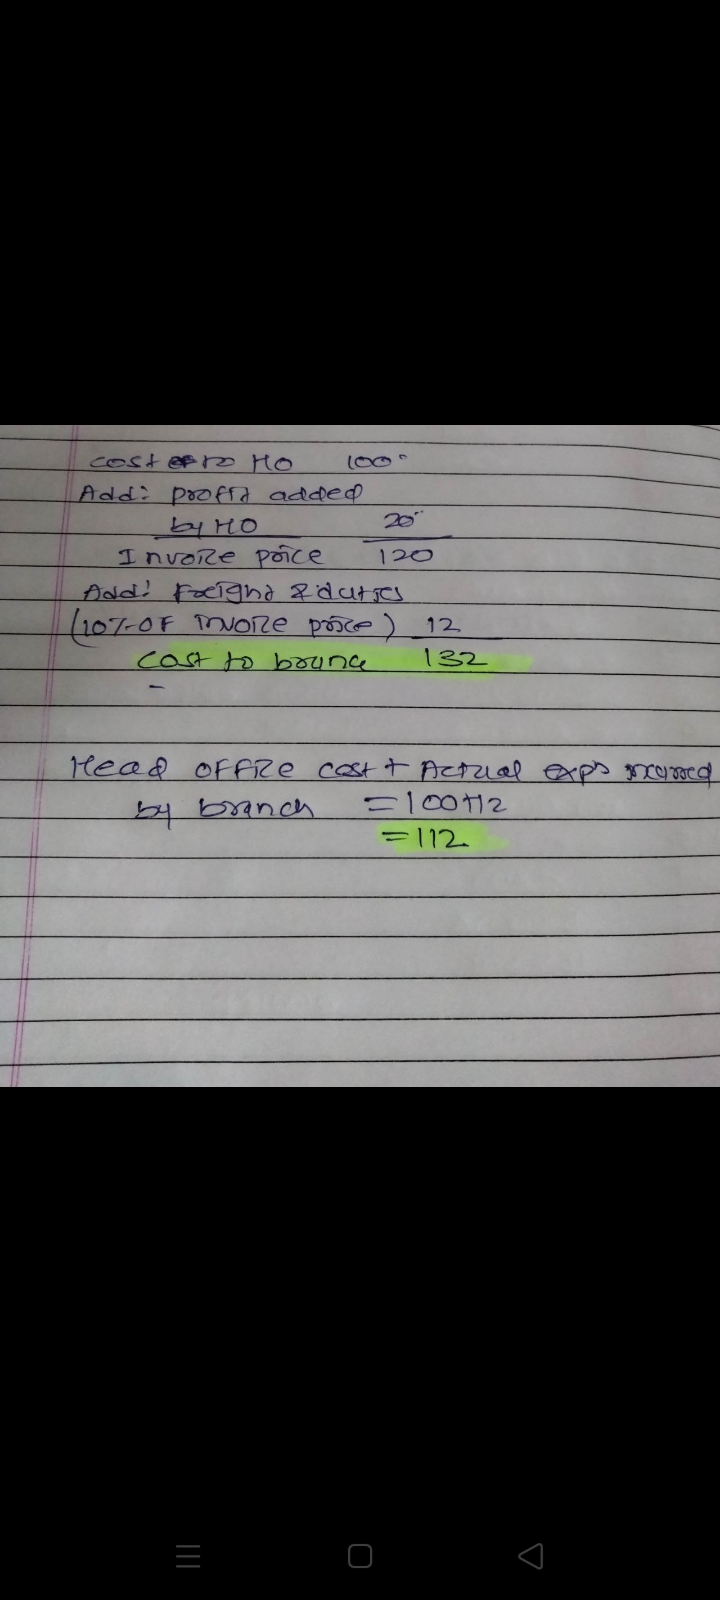 cost to HO 100
Add: profit added
by HO 20
Invoice price 120
Add: Freight & duties
(10% of invoice price) 12
Cost to branc 132
Head office cost + Actual exps incurred
by branch = 100+12
= 112